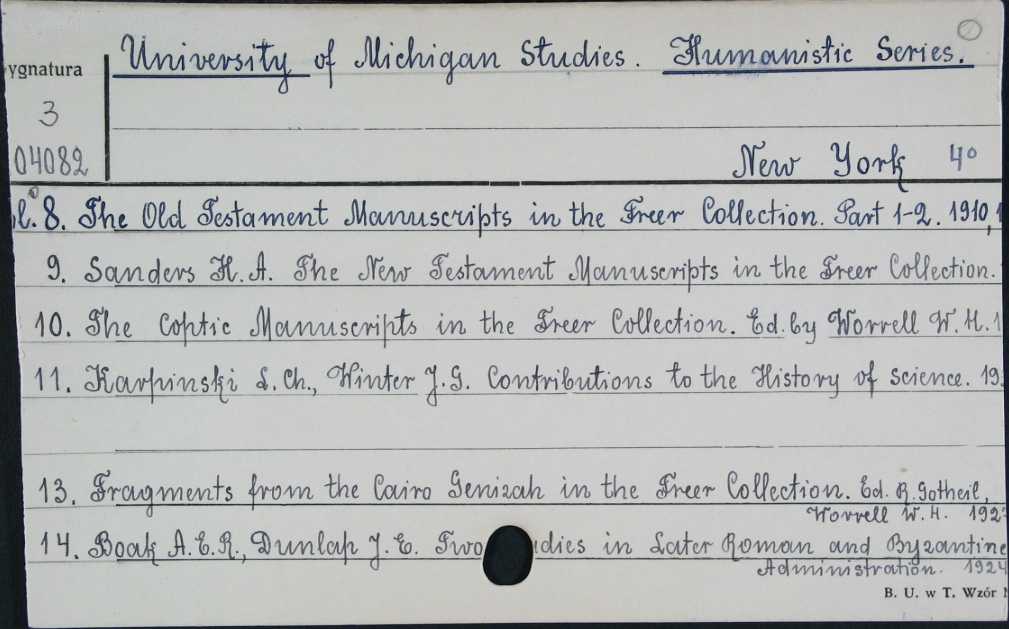 University of Michigan Studies. Humanistic Series.
ygnatura
3
04082
New York 4o
l. 8. The Old Testament Manuscripts in the Freer Collection. Part 1-2. 1910,1
9. Sanders H. A. The New Testament Manuscripts in the Freer Collection.
10. The Coptic Manuscripts in the Freer Collection. Ed. by Worrell W. H. 1
11. Karpinski L. Ch., Winter J. G. Contributions to the History of science. 19
13. Fragments from the Cairo Genizah in the Freer Collection. Ed. R. Gotheil,
Worrell W. H. 192
14. Boak A. E. R., Dunlap J. E. Two dies in Later Roman and Byzantine
Administration. 1924
B. U. w T. Wzór